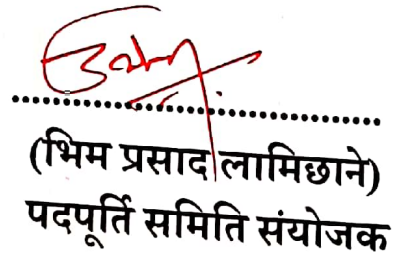 (भिम प्रसाद लामिछाने)
पदपूर्ति समिति संयोजक